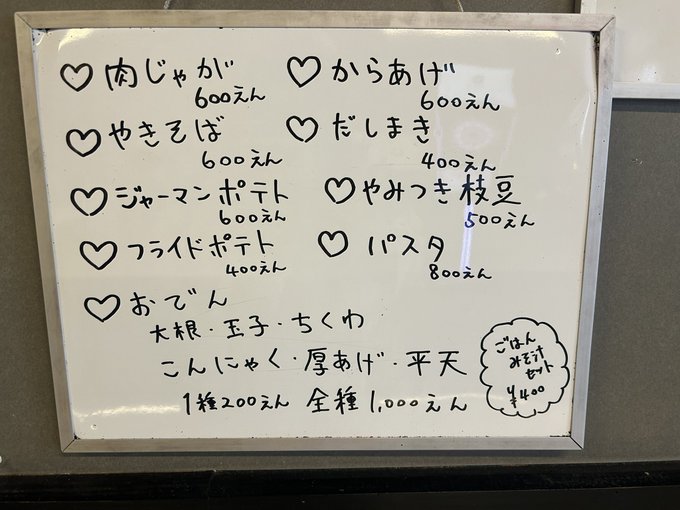 ♡肉じゃが
600えん
♡からあげ
600えん
♡やきそば
600えん
♡だしまき
400えん
♡ジャーマンポテト
600えん
♡やみつき枝豆
500えん
♡フライドポテト
400えん
♡パスタ
800えん
♡おでん
大根・玉子・ちくわ
こんにゃく・厚あげ・平天
1種200えん 全種1,000えん
ごはん
みそ汁
セット
¥400